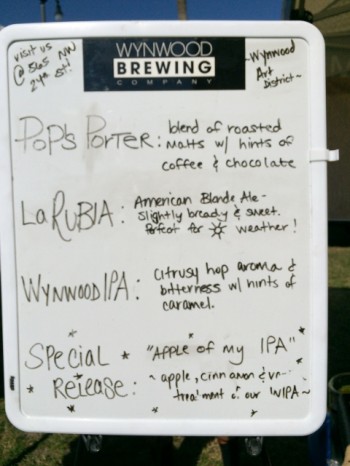 visit us
@ 565 NW
24th St!
WYNWOOD
BREWING
COMPANY
~Wynwood
Art
District~
POP'S PORTER: blend of roasted
malts w/ hints of
coffee & chocolate
La RUBIA: American Blonde Ale -
slightly bready & sweet.
for weather!
WYNWOOD IPA: citrusy hop aroma &
bitterness w/ hints of
caramel.
SPECIAL * "APPLE of my IPA"
RELEASE: ~ apple, cinnamon &
treatment of our WIPA~